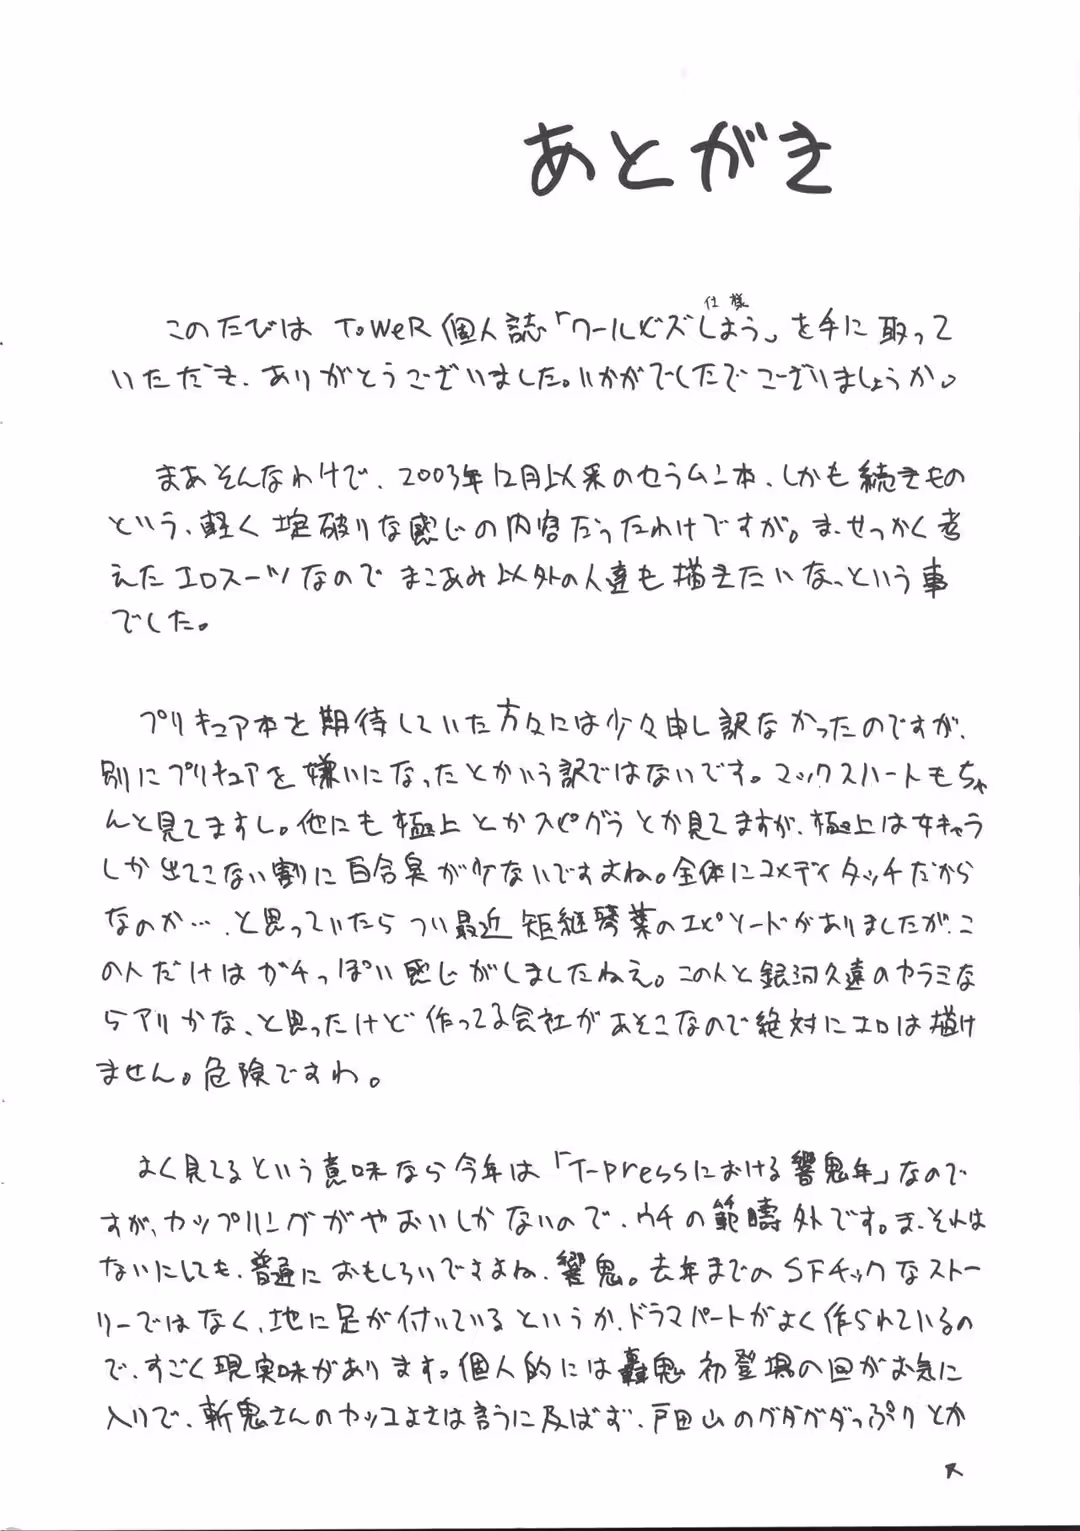 あとがき
仕様
このたびは ToWeR 個人誌「ワールビズしよう」を手に取って
いただき、ありがとうございました。いかがでしたでございましょうか。
まあそんなわけで、2003年12月以来のセラムン本、しかも続きもの
という、軽く掟破りな感じの内容だったわけですが。ま、せっかく考
えたエロスーツなのでまこあみ以外の人達も描きたいなっという事
でした。
プリキュア本を期待していた方々には少々申し訳なかったのですが、
別にプリキュアを嫌いになったとかいう訳ではないです。マックスハートもちゃ
んと見てますし。他にも極上とかスピグラとか見てますが、極上は女キャラ
しか出てこない割に百合臭が少ないですよね。全体にコメディタッチだから
なのか…、と思っていたらつい最近矩継琴葉のエピソードがありましたが、こ
の人だけはガチっぽい感じがしましたねえ。この人と銀河久遠のカラミな
らアリかな、と思ったけど作ってる会社があそこなので絶対にエロは描け
ません。危険ですわ。
よく見てるという意味なら今年は「T-pressにおける響鬼年」なので
すが、カップリングがやおいしかないので、ウチの範疇外です。ま、それは
ないにしても、普通におもしろいですよね、響鬼。去年までのSFチックなストー
リーではなく、地に足が付いているというか、ドラマパートがよく作られているの
で、すごく現実味があります。個人的には轟鬼初登場の回がお気に
入りで、斬鬼さんのカッコよさは言うに及ばず、戸田山のグダグダっぷりとか